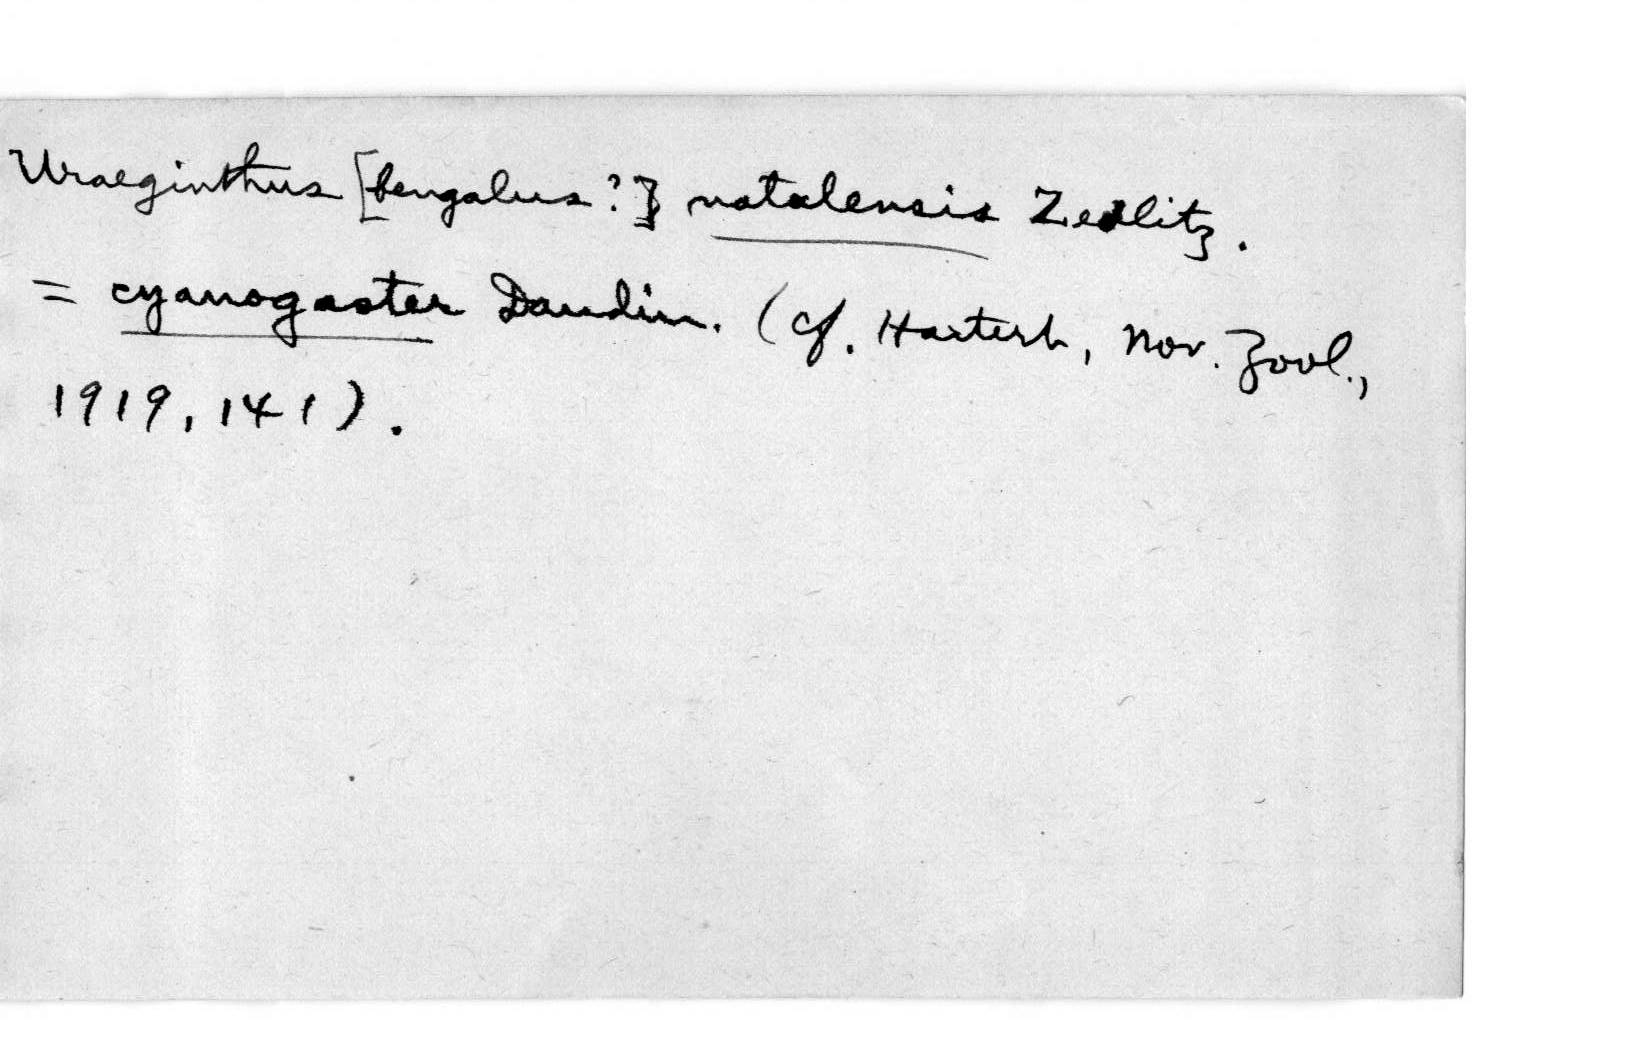 Uraeginthus [bengalus?] natalensis Zedlitz.
= cyanogaster Daudin. (cf. Hartert, Nov. Zool.,
1919, 141).